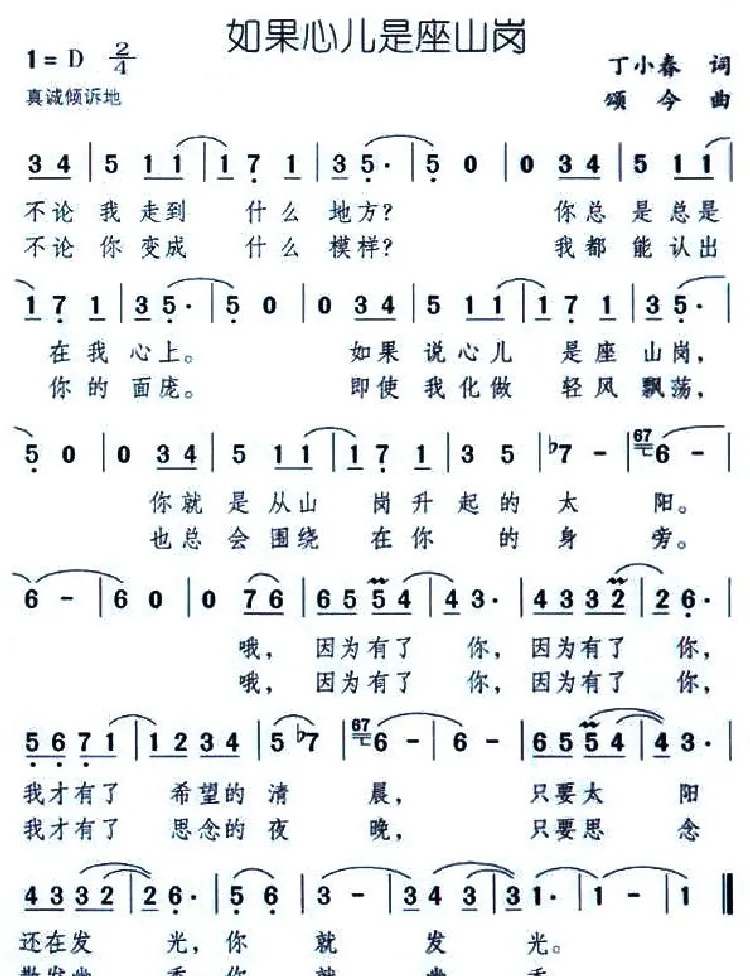 如果心儿是座山岗
1=D 2/4
丁小春 词
真诚倾诉地
颂今 曲
3 4 | 5 1 1 | 1 7 1 | 3 5· | 5 0 | 0 3 4 | 5 1 1 |
不论 我 走到 什么 地方? 你总 是 总是
不论 你 变成 什么 模样? 我都 能 认出
1 7 1 | 3 5· | 5 0 | 0 3 4 | 5 1 1 | 1 7 1 | 3 5· |
在我 心上。 如果 说心儿 是座 山岗,
你的 面庞。 即使 我化做 轻风 飘荡,
5 0 | 0 3 4 | 5 1 1 | 1 7 1 | 3 5 | ♭7 - | 67 6 - |
你就 是从山 岗升 起的 太 阳。
也总 会围绕 在你 的 身 旁。
6 - | 6 0 | 0 7 6 | 6 5 5 4 | 4 3· | 4 3 3 2 | 2 6· |
哦, 因为有了 你, 因为有了 你,
哦, 因为有了 你, 因为有了 你,
5 6 7 1 | 1 2 3 4 | 5 ♭7 | 67 6 - | 6 - | 6 5 5 4 | 4 3· |
我才有了 希望的 清 晨, 只要太 阳
我才有了 思念的 夜 晚, 只要思 念
4 3 3 2 | 2 6· | 5 6 | 3 - | 3 4 3 | 3 1· | 1 - | 1 ‖
还在发 光, 你 就 发 光。